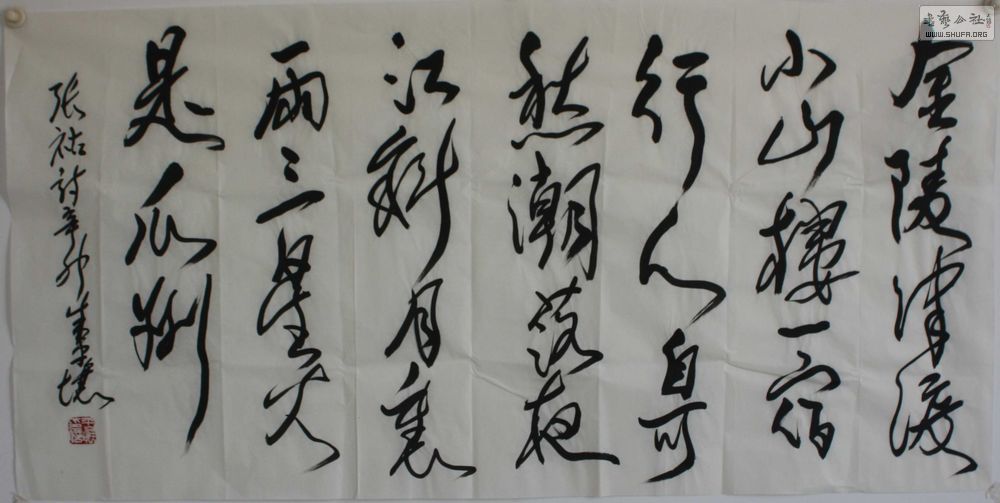 金陵津渡
小山樓一宿
行人自可
愁潮落夜
江斜月裏
兩三星火
是瓜州
張祜詩辛卯
書藝公社
WWW.SHUFA.ORG